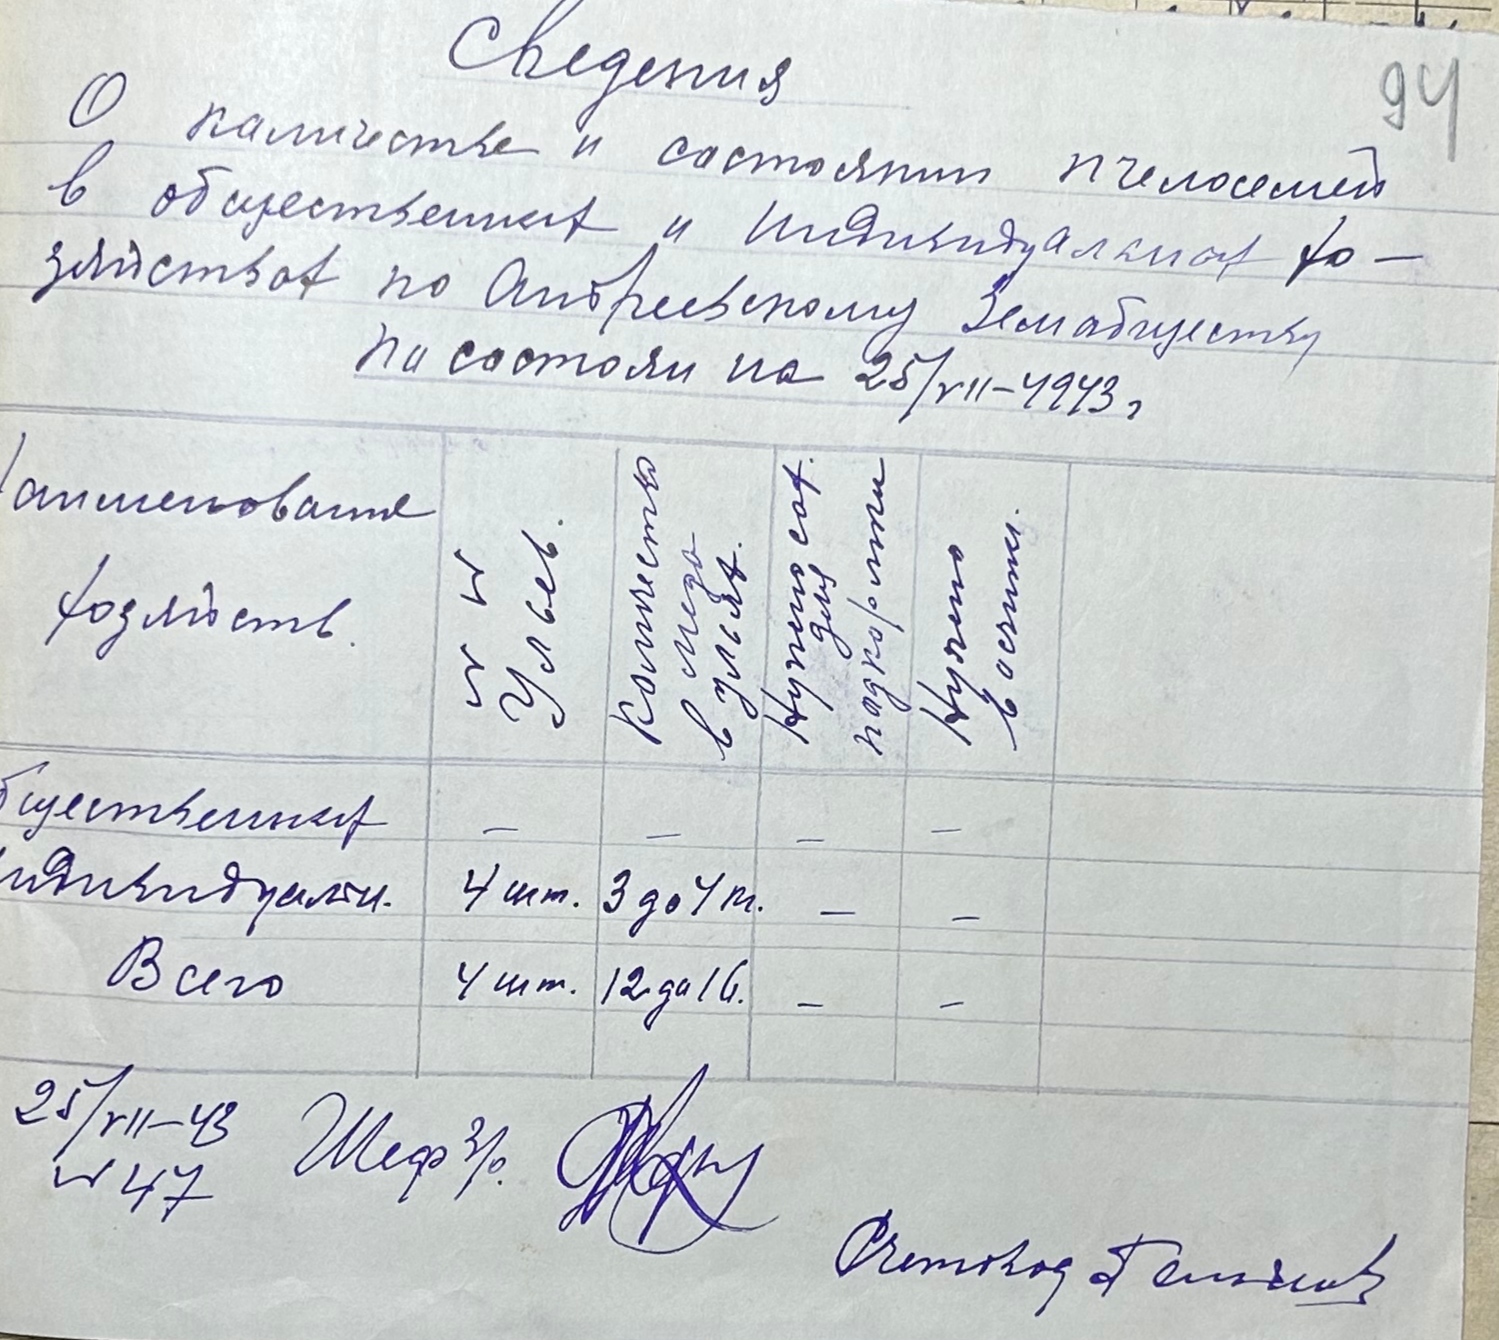 Сведения
94
О каличестве и состоянии пчелосемей
в общественных и индивидуальных хо-
зяйствах по Андреевскому Земабществу
на состоян на 25/VII-1943 г
Наименования
хозяйств.
№ №
Ульев.
Количество
меда
в ульях.
Нужно сах.
для
подкормки
Нужно
вощины.
общественных — — — —
Индивидуальн. 4 шт. 3 до 4 кг. — —
Всего 4 шт. 12 до 16. — —
25/VII-43
№ 47
Шеф
Счетовод